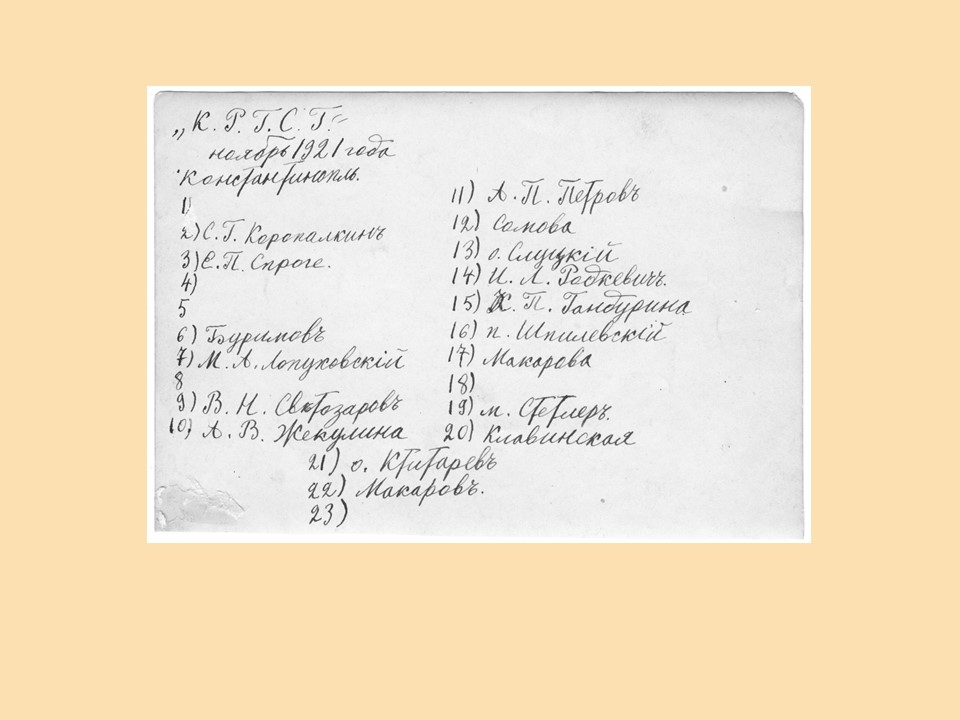 „К. Р. Г. С. Т.“
ноябрь 1921 года
Константинополь.
1)
2) С. Г. Коропалкинъ
3) Е. П. Спроге.
4)
5
6) Буримовъ
7) М. А. Лопуховскій
8
9) В. Н. Святозаровъ
10) А. В. Жекулина
11) А. П. Петровъ
12) Сомова
13) о. Слуцкій
14) И. Л. Радкевичъ.
15) К. П. Гамбурина
16) п. Шпилевскій
17) Макарова
18)
19) м. Стетлеръ.
20) Клавинская
21) о. Ктитаревъ
22) Макаровъ.
23)